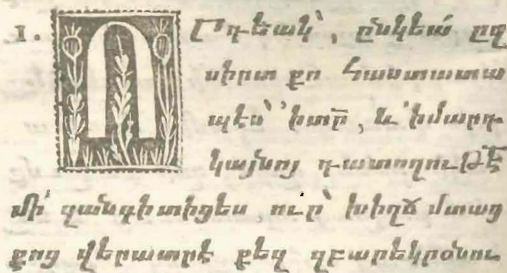 1. ՈՐդեակ՝, ընկեա՛ ըզ
սիրտ քո հաստատա
պէս՝ ՚ի տր̅, և ՚ի մարդ
կայնոյ դատողութե̅
մի՛ զանգիտիցես, ուր՝ խիղճ մտաց
քոց քեզ զբարեկրօնու